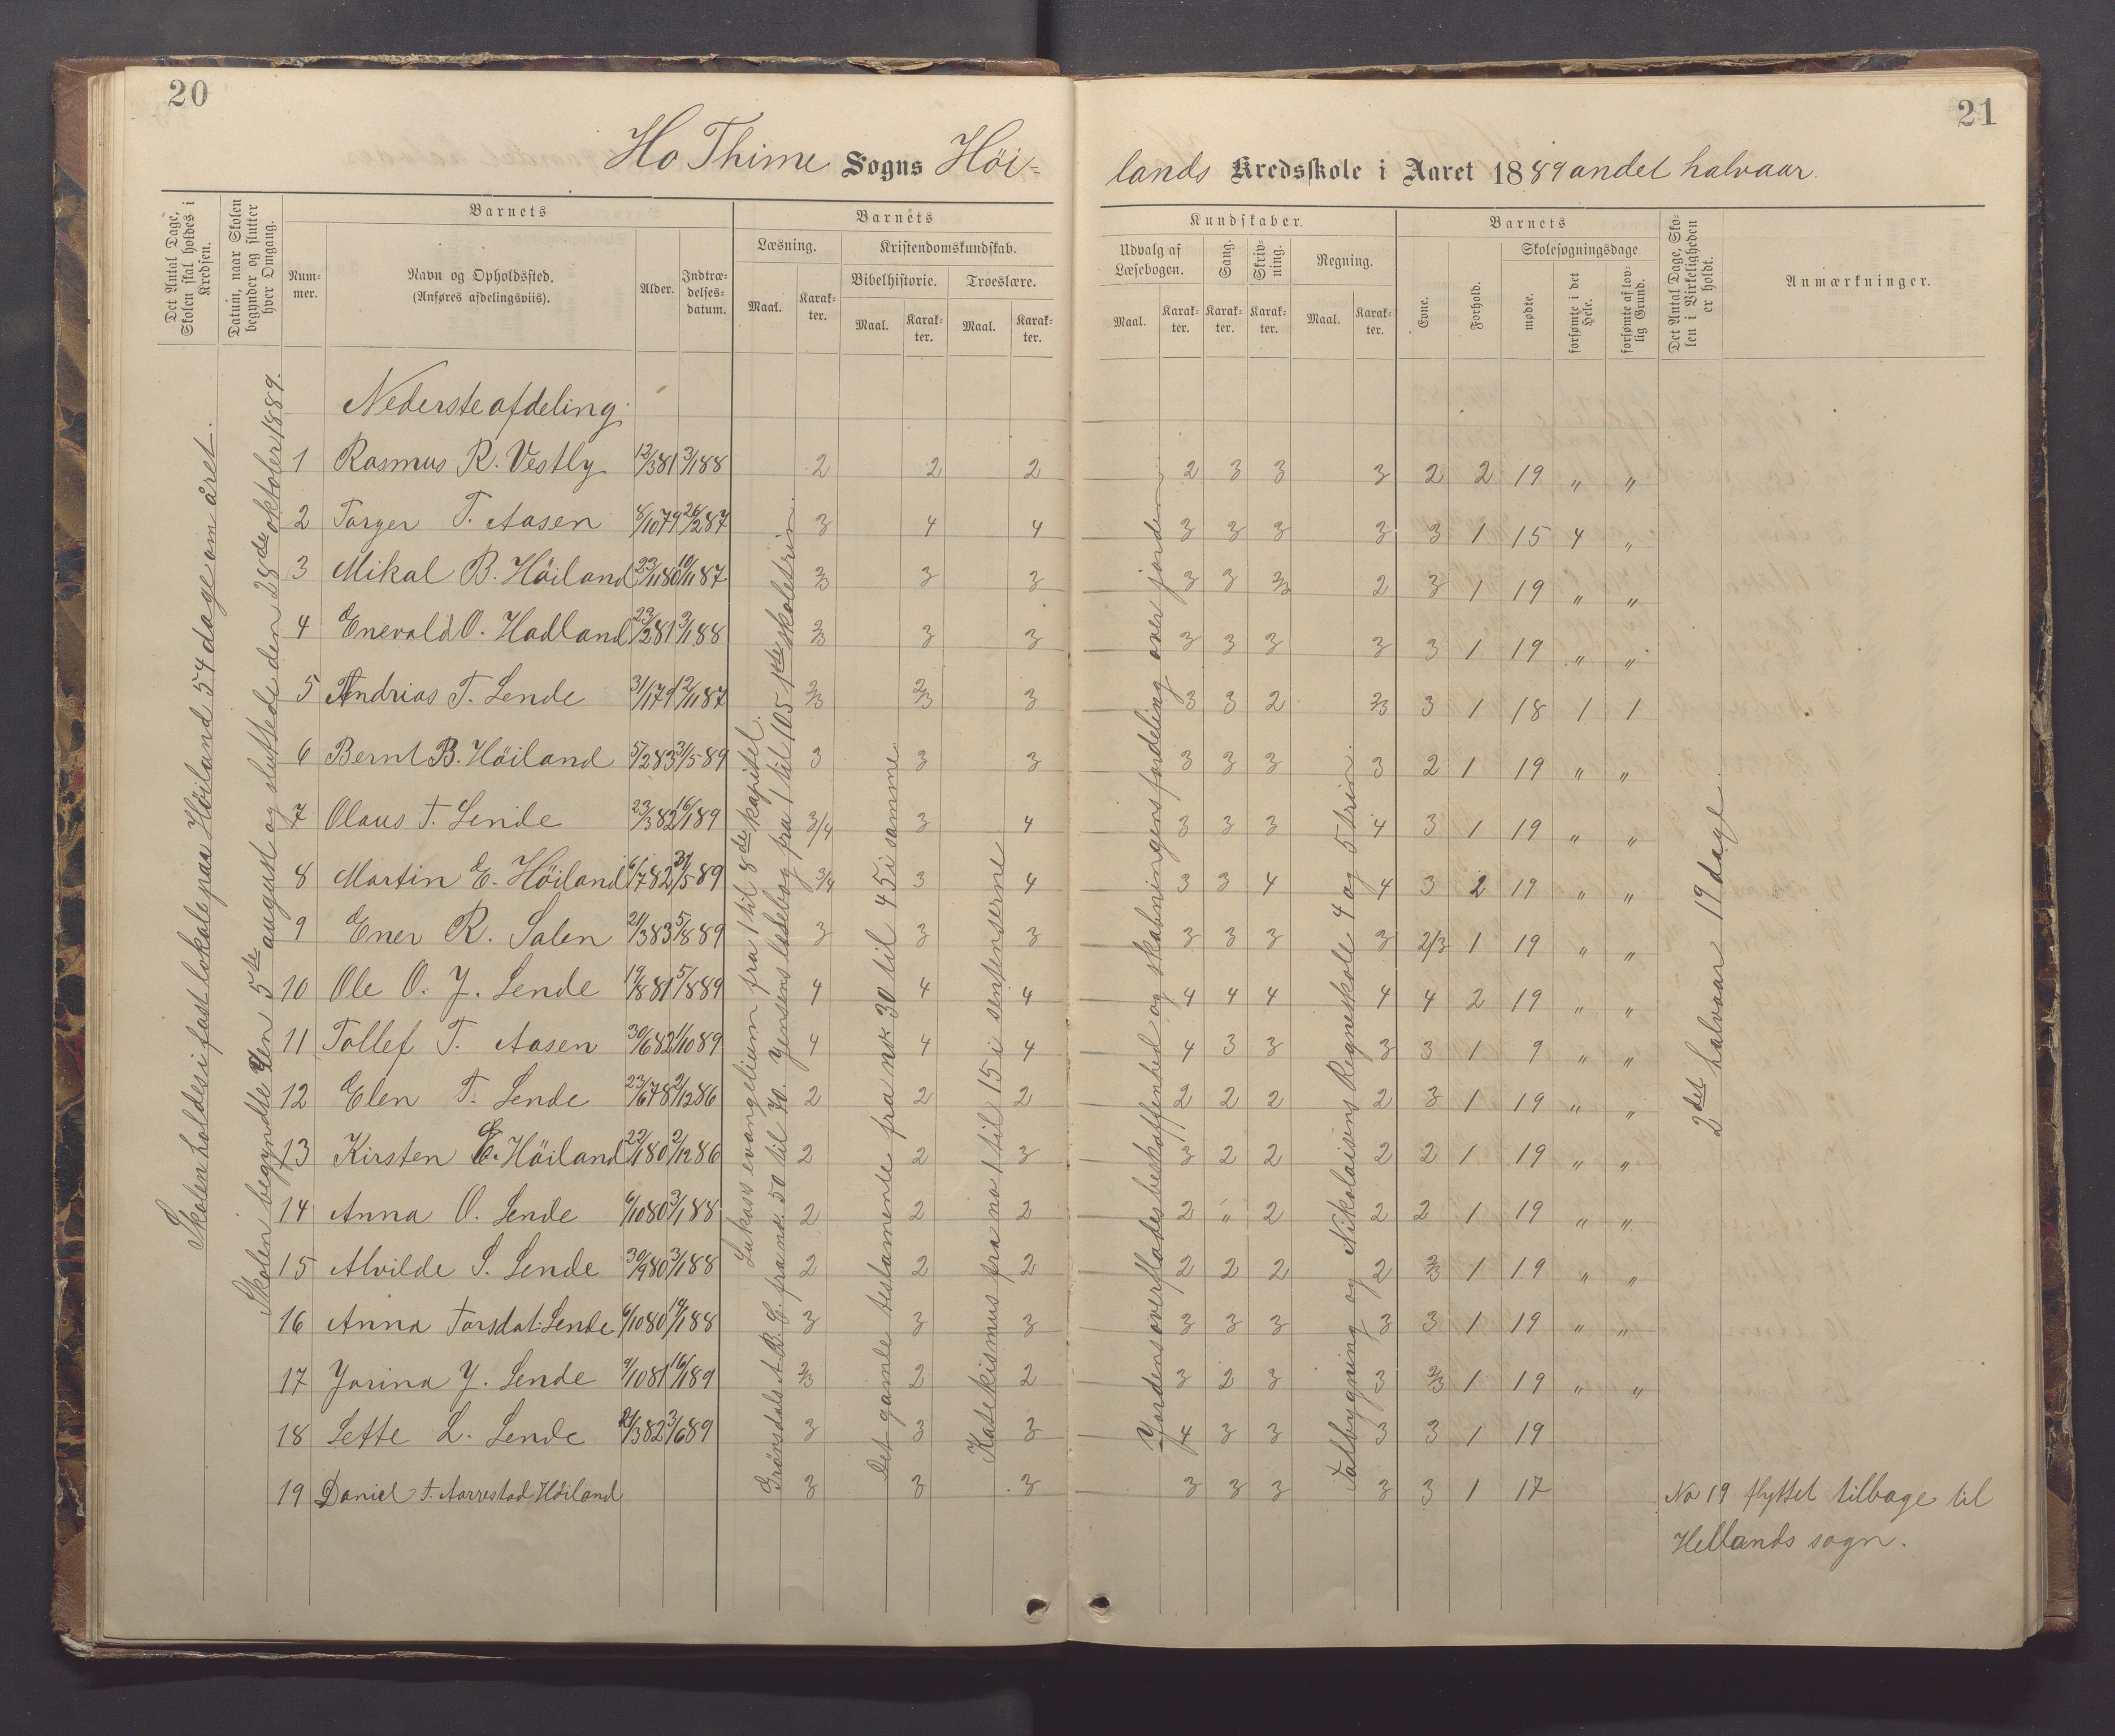 20
21
Ho Thime Sogns Höi-
lands Kredsskole i Aaret 1889 andet halvaar.
Det Antal Dage, Skolen skal holdes i Kredsen.
Datum, naar Skolen begynder og slutter hver Omgang.
Barnets
Num-mer.
Navn og Opholdssted.
(Anføres afdelingsviis).
Alder.
Indtræ-delses-datum.
Barnets
Læsning.
Maal. Karak-ter.
Kristendomskundskab.
Bibelhistorie. Troeslære.
Maal. Karak-ter. Maal. Karak-ter.
Kundskaber.
Udvalg af Læsebogen. Sang. Skriv-ning. Regning.
Maal. Karak-ter. Karak-ter. Karak-ter. Maal. Karak-ter.
Barnets
Evne. Forhold. Skolesøgningsdage.
mødte. forsømte i det Hele. forsømte af lov-lig Grund.
Det Antal Dage, Sko-len i Virkeligheden er holdt.
Anmærkninger.
Skolen holdes i fast lokale paa Höiland 54 dage om året.
Skolen begyndte den 5te august og sluttede den 28de oktober 1889.
Lukas's evangelium fra 1 til 8de kapitel.
Grönsdals A.B.C. fra nr. 50 til 70. Jensens læsebog fra 1 til 105 1ste skoletrin.
Det gamle testamente fra nr. 30 til 45 i samme
Katekismus fra no 1 til 15 i sentenserne
Jordens overflades beskaffenhed og skabningens fordeling over jorden
Talbygning og Nikolaisens Regneskole 4 og 5 trin.
2det halvaar 19 dage
Nederste afdeling.
1 Rasmus R. Vestly 12/3 81 3/1 88 2 2 2 2 3 3 3 2 2 19 " "
2 Torger T. Aasen 8/10 79 26/2 87 3 4 4 3 3 3 3 3 1 15 4 "
3 Mikal B. Höiland 23/11 80 10/11 87 2/3 3 3 3 3 2/3 2 3 1 19 " "
4 Enevald O. Hadland 23/2 81 3/1 88 2/3 3 3 3 3 3 3 3 1 19 " "
5 Andrias T. Lende 31/1 79 12/11 87 2/3 2/3 3 3 3 2 2/3 3 1 18 1 1
6 Bernt B. Höiland 5/2 83 31/5 89 3 3 3 3 3 3 3 2 1 19 " "
7 Olaus T. Lende 23/3 82 16/1 89 3/4 3 4 3 3 3 4 3 1 19 " "
8 Martin E. Höiland 6/7 82 31/5 89 3/4 3 4 3 3 4 4 3 2 19 " "
9 Ener R. Salen 21/3 83 5/8 89 3 3 3 3 3 3 3 2/3 1 19 " "
10 Ole O. J. Lende 19/8 81 5/8 89 4 4 4 4 4 4 4 4 2 19 " "
11 Tollef T. Aasen 30/6 82 1/10 89 4 4 4 4 3 3 3 3 1 9 " "
12 Elen T. Lende 23/6 78 2/12 86 2 2 2 2 2 2 2 3 1 19 " "
13 Kirsten E. Höiland 22/1 80 2/12 86 2 2 3 3 2 2 2 2 1 19 " "
14 Anna O. Lende 6/10 80 3/1 88 2 2 2 2 " 2 2 2 1 19 " "
15 Alvilde S. Lende 30/9 80 3/1 88 2 2 2 2 2 2 2 2/3 1 19 " "
16 Anna Torsdat. Lende 6/10 80 14/1 88 3 3 3 3 3 3 3 3 1 19 " "
17 Jorina J. Lende 9/10 81 16/1 89 2/3 2 2 3 2 3 3 2/3 1 19 " "
18 Lette L. Lende 21/3 82 3/6 89 3 3 3 4 3 3 3 3 1 19
19 Daniel T. Aarrestad Höiland 3 3 3 3 3 3 3 3 1 17 No 19 flyttet tilbage til
Hellands sogn.